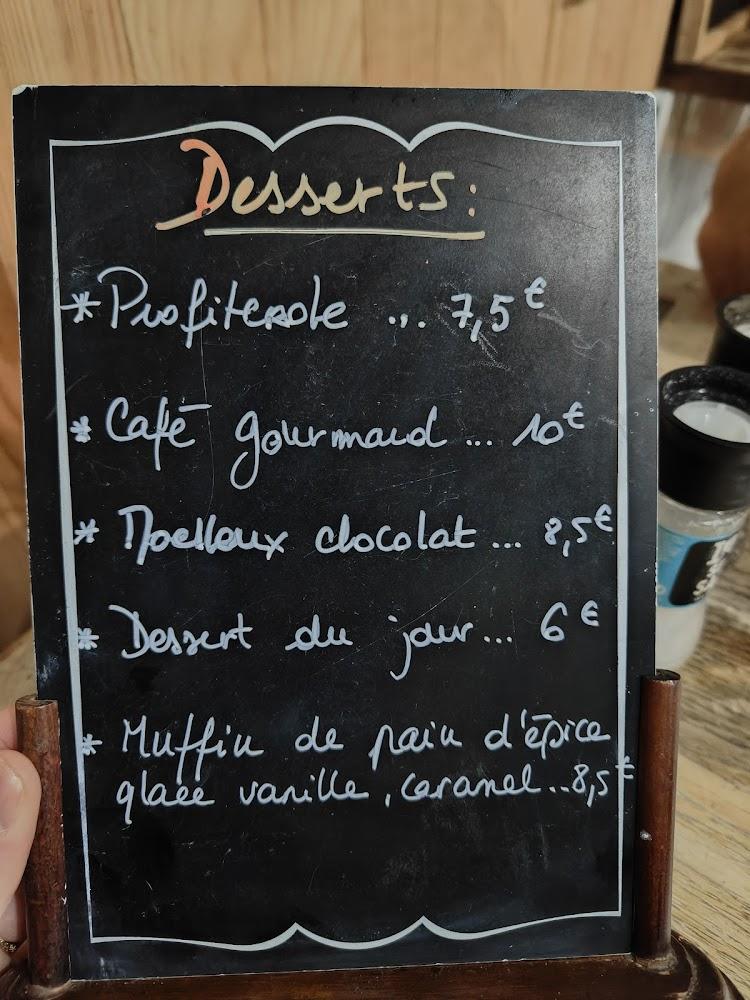 Desserts:
* Profiterole ... 7,5€
* Café gourmand ... 10€
* Moelleux chocolat ... 8,5€
* Dessert du jour... 6€
* Muffin de pain d'épice
glace vanille, caramel..8,5€